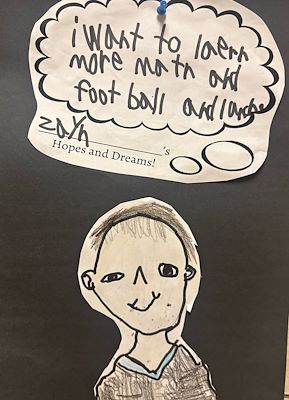 i want to laern
more matn and
foot ball and lunche
zayn
's
Hopes and Dreams!